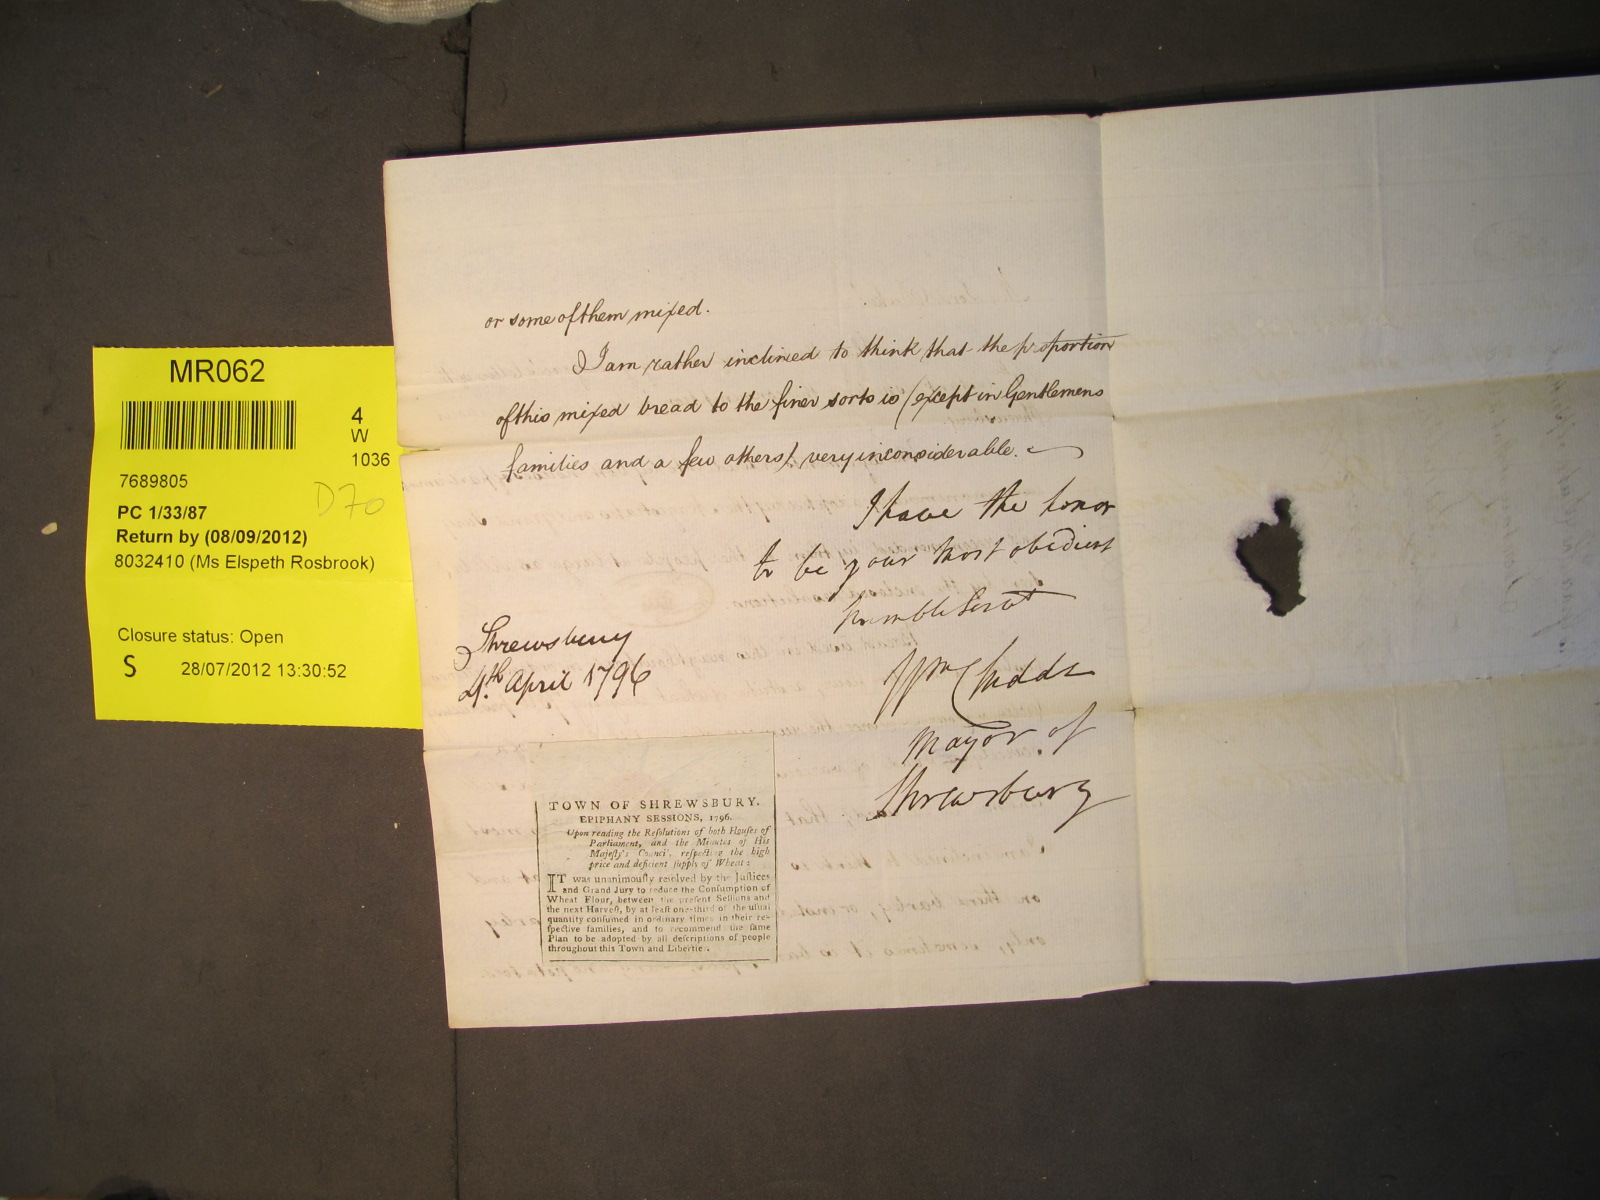 MR062
4
W
1036
7689805
D70
PC 1/33/87
Return by (08/09/2012)
8032410 (Ms Elspeth Rosbrook)
Closure status: Open
S 28/07/2012 13:30:52
or some of them mixed.
I am rather inclined to think that the proportion
of this mixed bread to the finer sorts is (except in Gentlemens
families and a few others) very inconsiderable.
I have the honor
to be your most obedient
humble Servt
Shrewsbury
4th. April 1796
Wm
Mayor of
Shrewsbury
TOWN OF SHREWSBURY.
EPIPHANY SESSIONS, 1796.
Upon reading the Reſolutions of both Houſes of
Parliament, and the Minutes of His
Majeſty's Council, reſpecting the high
price and deficient ſupply of Wheat:
IT was unanimouſly reſolved by the Juſtices
and Grand Jury to reduce the Conſumption of
Wheat Flour, between the preſent Seſſions and
the next Harveſt, by at leaſt one-third of the uſual
quantity conſumed in ordinary times in their re-
ſpective families, and to recommend the ſame
Plan to be adopted by all deſcriptions of people
throughout this Town and Liberties.